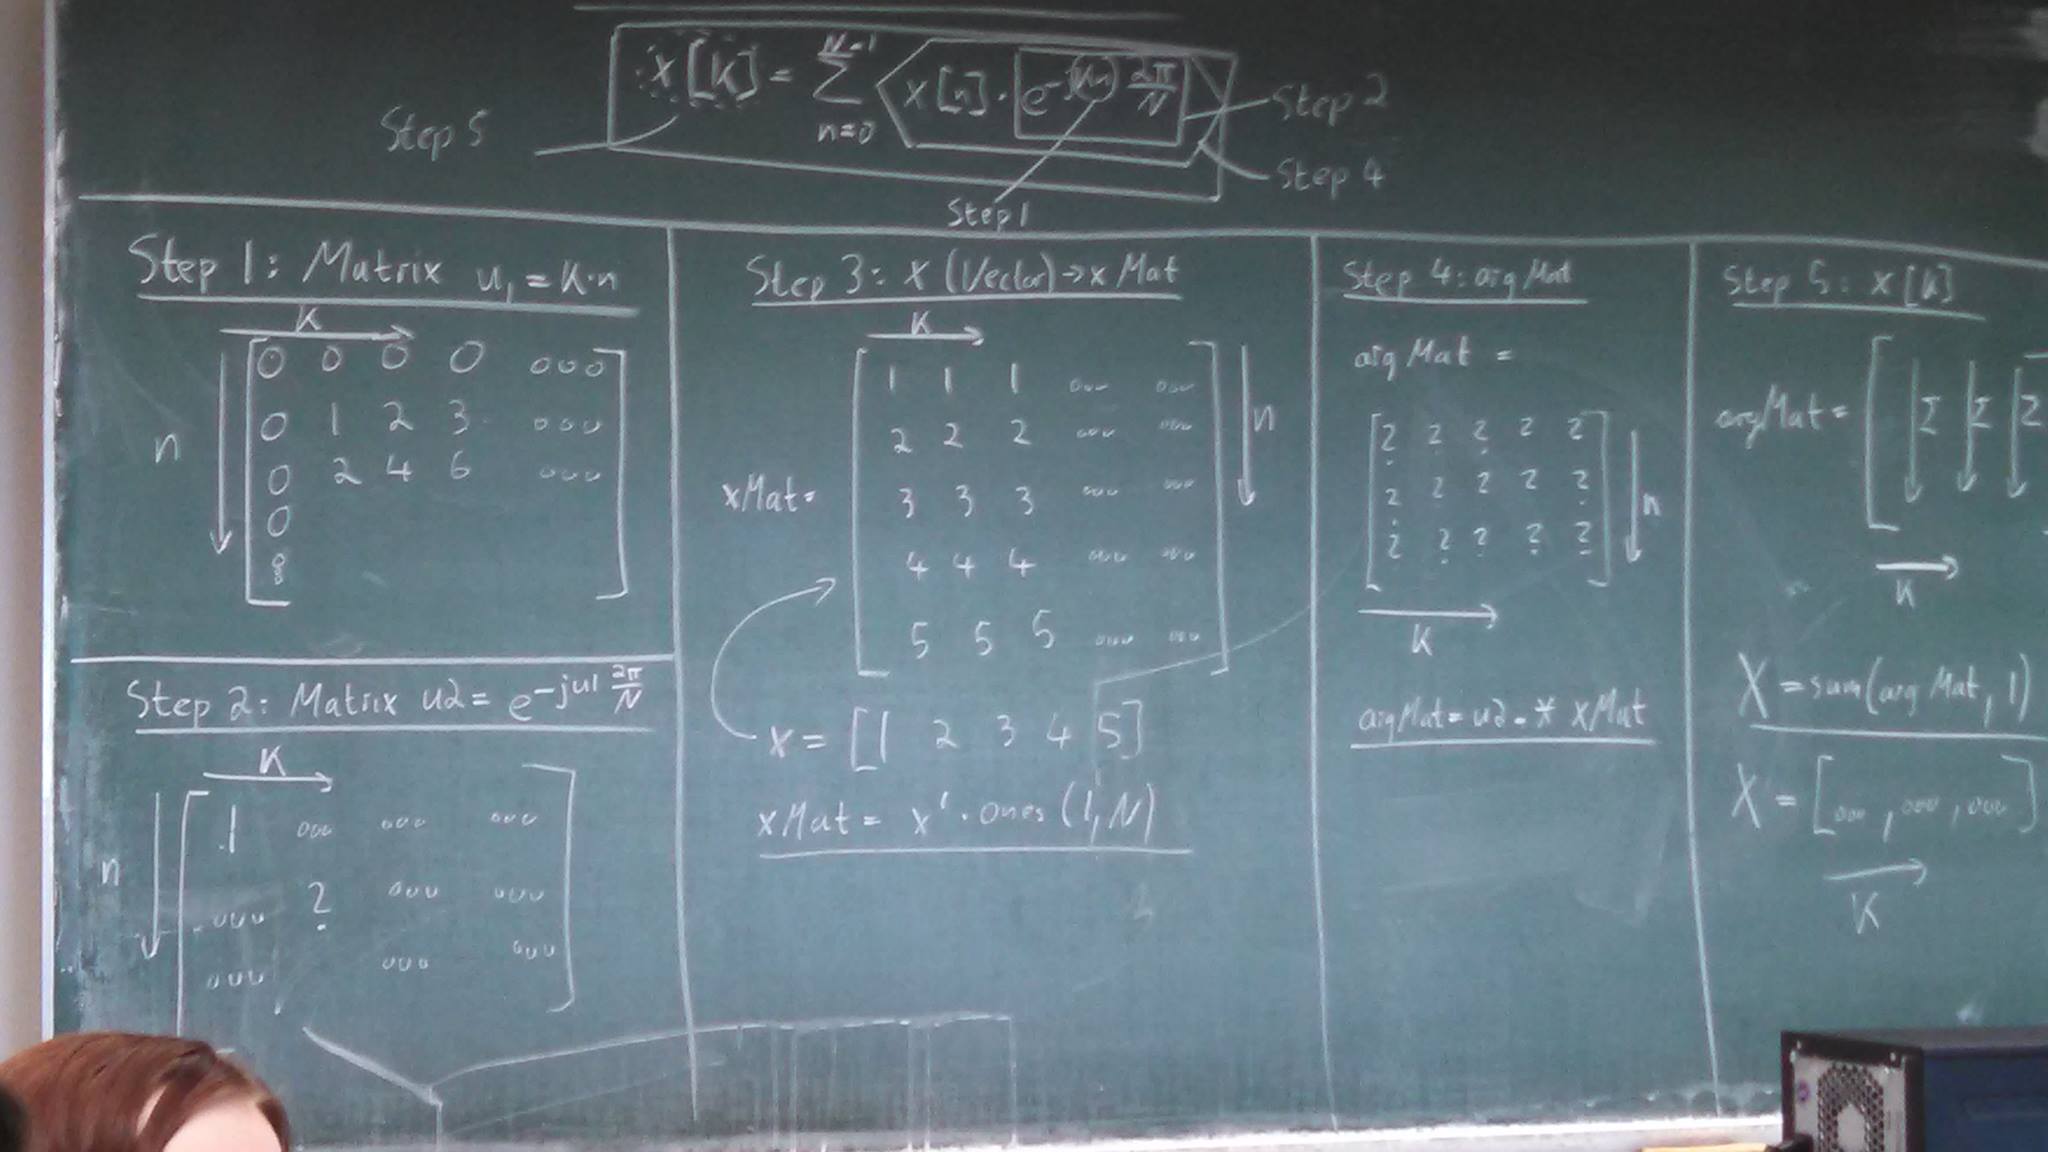 x[k] = Σ x[n] · e^-j(kn) 2π/N
N-1
n=0
Step 5
Step 2
Step 4
Step 1
Step 1: Matrix u₁ = k·n
k
0 0 0 0 ...
0 1 2 3 ...
n
0 2 4 6 ...
0
Step 2: Matrix u2 = e^-ju1 2π/N
k
1 ... ... ...
n
... ? ... ...
... ... ...
Step 3: x (Vector) → x Mat
k
1 1 1 ... ...
2 2 2 ... ...
n
xMat =
3 3 3 ... ...
4 4 4 ... ...
5 5 5 ... ...
x = [1 2 3 4 5]
xMat = x' · ones (1, N)
Step 4: arg Mat
arg Mat =
? ? ? ? ?
? ? ? ? ?
n
? ? ? ? ?
k
argMat = u2 .* xMat
Step 5: x [k]
argMat = [ Σ Σ Σ
k
X = sum(arg Mat, 1)
X = [... , ... , ...]
k